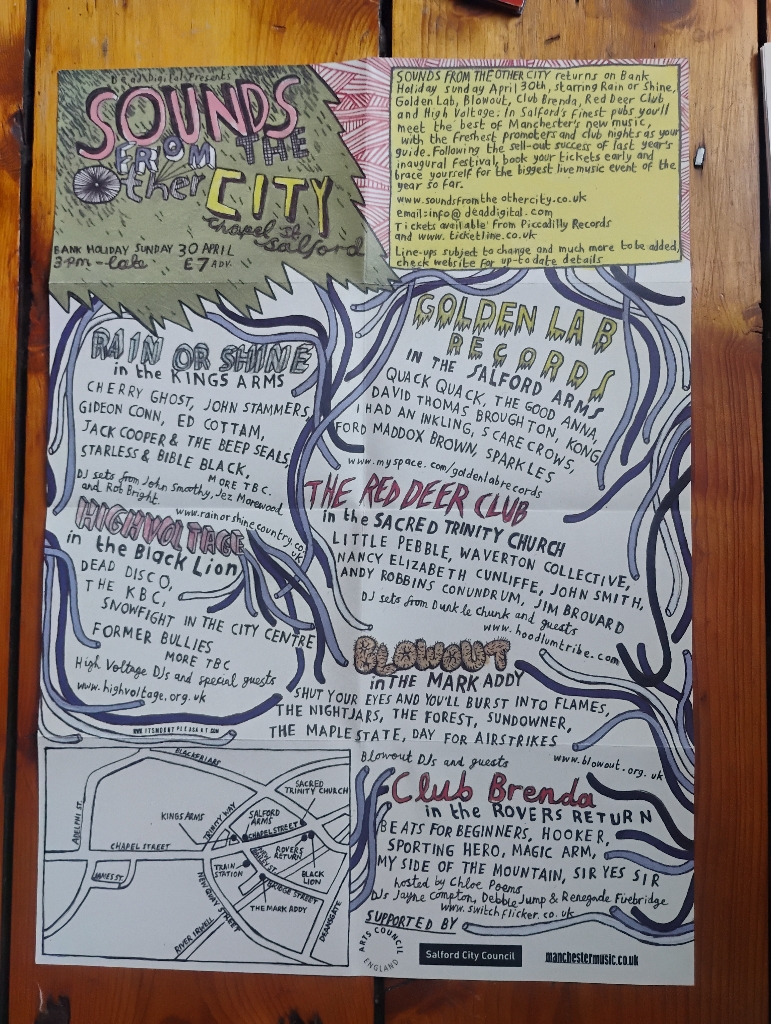 DeadDigital Presents
SOUNDS
FROM THE
Other CITY
chapel st
Salford
BANK HOLIDAY SUNDAY 30 APRIL
3pm - late £7 ADV.
SOUNDS FROM THE OTHER CITY returns on Bank
Holiday Sunday April 30th, starring Rain or Shine,
Golden Lab, Blowout, Club Brenda, Red Deer Club
and High Voltage: In Salford's finest pubs you'll
meet the best of Manchester's new music,
with the freshest promoters and club nights as your
guide. Following the sell-out success of last year's
inaugural festival, book your tickets early and
brace yourself for the biggest live music event of the
year so far.
www.soundsfromtheothercity.co.uk
email: info@deaddigital.com
Tickets available from Piccadilly Records
and www.ticketline.co.uk
Line-ups subject to change and much more to be added,
check website for up-to date details
RAIN OR SHINE
in the KINGS ARMS
CHERRY GHOST, JOHN STAMMERS,
GIDEON CONN, ED COTTAM,
JACK COOPER & THE BEEP SEALS,
STARLESS & BIBLE BLACK,
MORE TBC.
DJ sets from John Smoothy, Jez Morewood
and Rob Bright
www.rainorshinecountry.co.uk
GOLDEN LAB
RECORDS
IN THE SALFORD ARMS
QUACK QUACK, THE GOOD ANNA,
DAVID THOMAS BROUGHTON, KONG,
I HAD AN INKLING, SCARE CROWS,
FORD MADDOX BROWN, SPARKLES
www.myspace.com/goldenlabrecords
THE RED DEER CLUB
in the SACRED TRINITY CHURCH
LITTLE PEBBLE, WAVERTON COLLECTIVE,
NANCY ELIZABETH CUNLIFFE, JOHN SMITH,
ANDY ROBBINS CONUNDRUM, JIM BROUARD
DJ sets from Dunkle chunk and guests
www.hoodlumtribe.com
HIGH VOLTAGE
in the Black Lion
DEAD DISCO,
THE KBC,
SNOWFIGHT IN THE CITY CENTRE
FORMER BULLIES
MORE TBC
High Voltage DJs and special guests
www.highvoltage.org.uk
BLOWOUT
in THE MARK ADDY
SHUT YOUR EYES AND YOU'LL BURST INTO FLAMES,
THE NIGHTJARS, THE FOREST, SUNDOWNER,
THE MAPLE STATE, DAY FOR AIRSTRIKES
Blowout DJs and guests
www.blowout.org.uk
Club Brenda
in the ROVERS RETURN
BEATS FOR BEGINNERS, HOOKER,
SPORTING HERO, MAGIC ARM,
MY SIDE OF THE MOUNTAIN, SIR YES SIR
hosted by Chloe Poems
DJs Jayne Compton, Debble Jump & Renegade Firebridge
www.switchflicker.co.uk
SUPPORTED BY
ARTS COUNCIL
ENGLAND
Salford City Council
manchestermusic.co.uk
BLACKFRIARS
ADELPHI ST.
KINGS ARMS
TRINITY WAY
SALFORD
ARMS
SACRED
TRINITY CHURCH
CHAPEL STREET
CHAPEL STREET
ROVERS
RETURN
JAMES ST.
TRAIN
STATION
BLACK
LION
BRIDGE STREET
THE MARK ADDY
NEW QUAY STREET
RIVER IRWELL
DEANSGATE